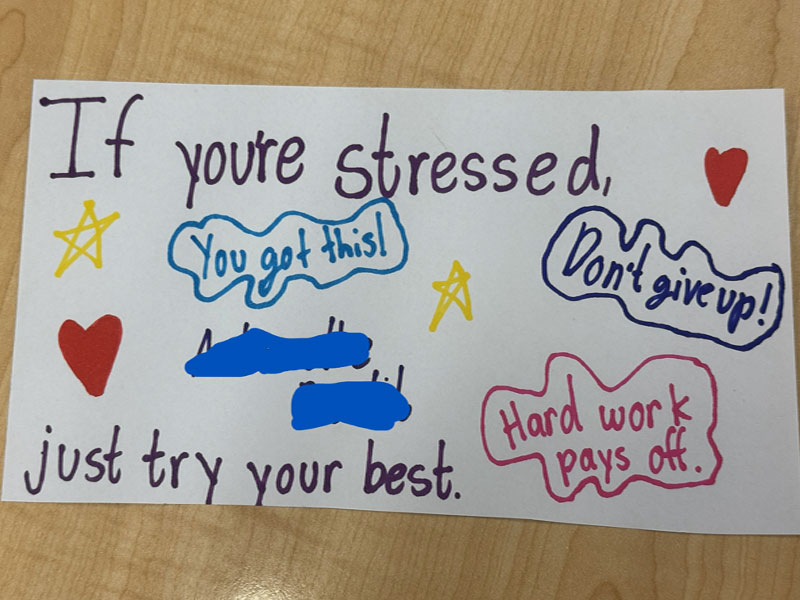 If you're stressed,
You got this!
Don't give up!
Hard work
pays off.
just try your best.